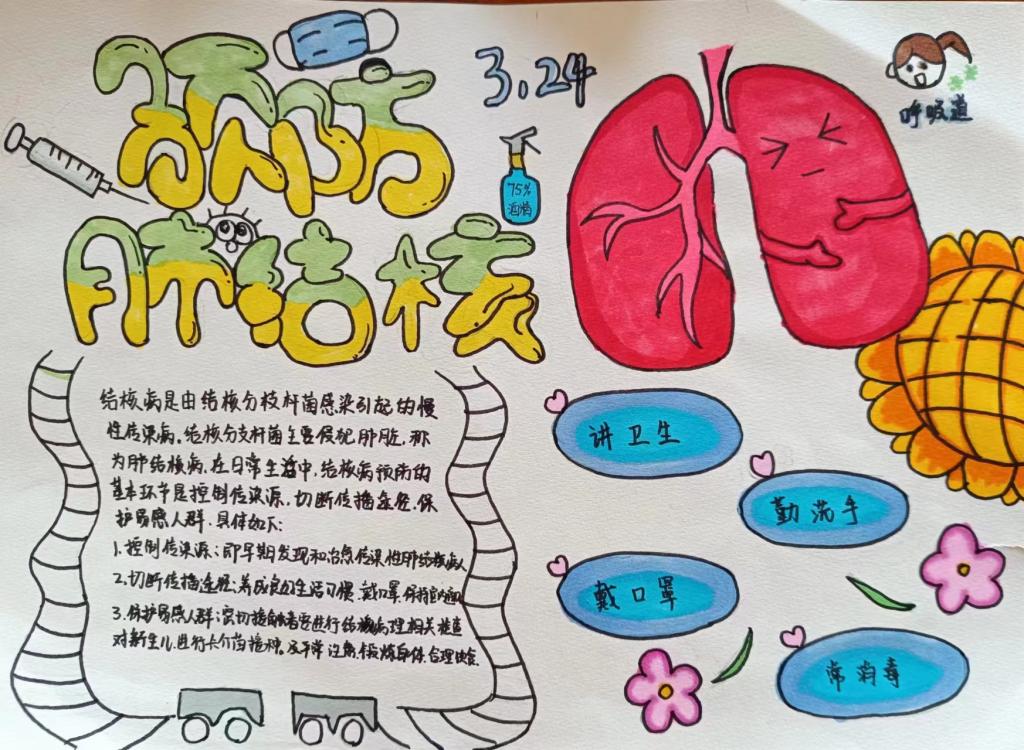 预防
肺结核
3.24
呼吸道
75%
酒精
结核病是由结核分枝杆菌感染引起的慢
性传染病。结核分支杆菌主要侵犯肺脏,称
为肺结核病,在日常生活中,结核病预防的
基本环节是控制传染源,切断传播途径,保
护易感人群,具体如下:
1.控制传染源:即早期发现和治愈传染性肺结核病人
2.切断传播途径:养成良好生活习惯,戴口罩,保持室内通风
3.保护易感人群:密切接触者要进行结核病理相关检查
对新生儿进行卡介苗接种。及平常注意锻炼身体,合理饮食.
讲卫生
勤洗手
戴口罩
常消毒